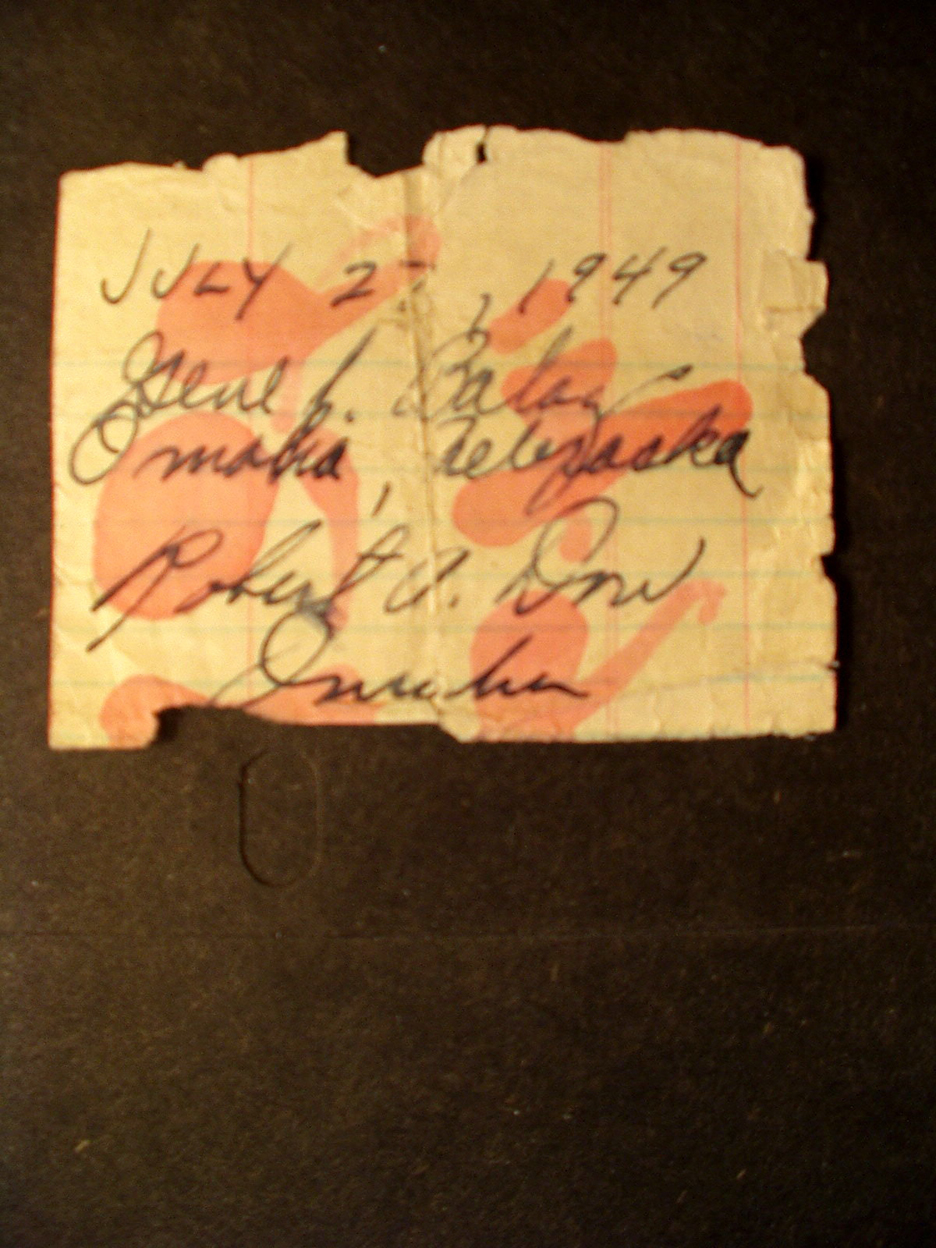 JULY 27, 1949
Gene L.
Omaha, Nebraska
Robert A. Dow
Omaha